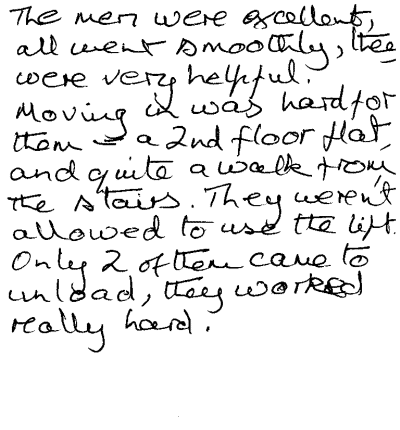 The men were excellent,
all went smoothly, they
were very helpful.
Moving in was hard for
them – a 2nd floor flat,
and quite a walk from
the stairs. They weren't
allowed to use the lift.
Only 2 of them came to
unload, they worked
really hard.